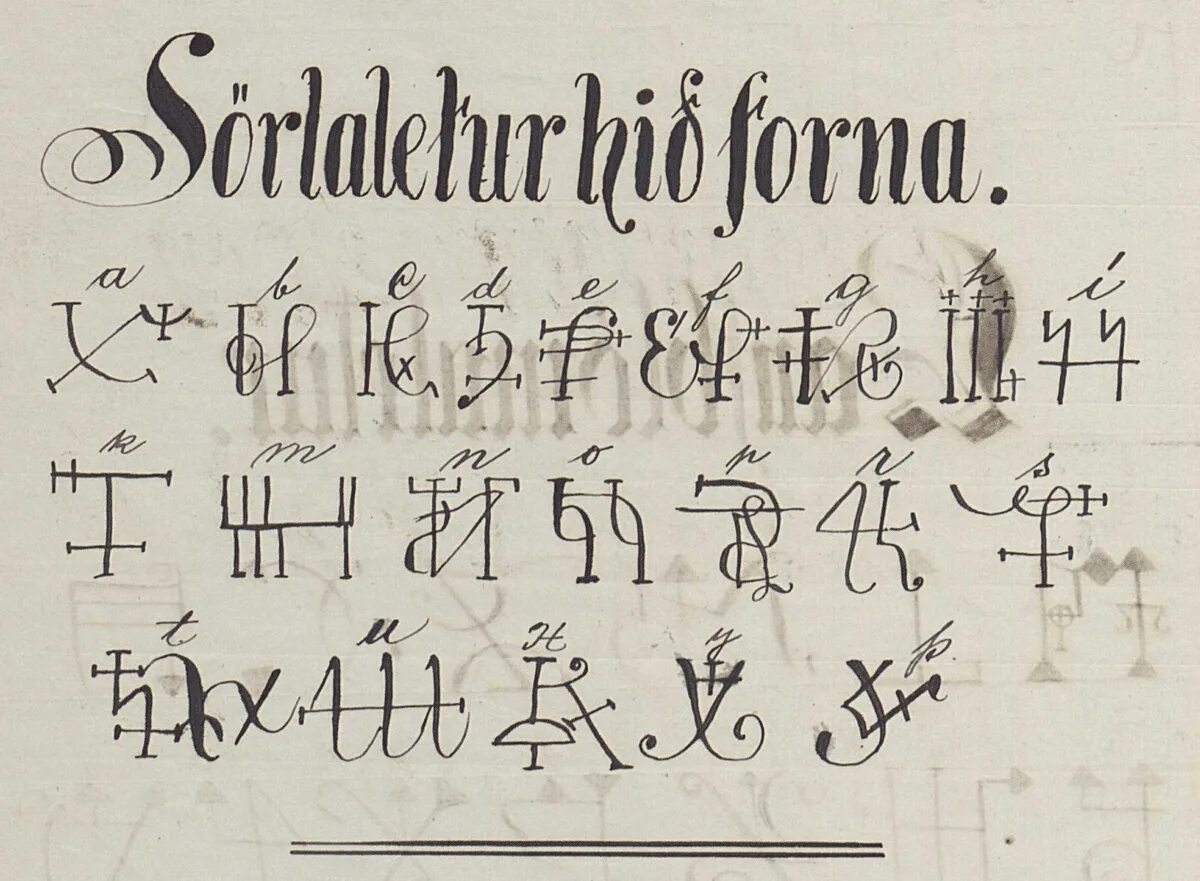 Sörlaletur hið forna.
a b c d e f g h i
k m n o p r s
t u x y þ.